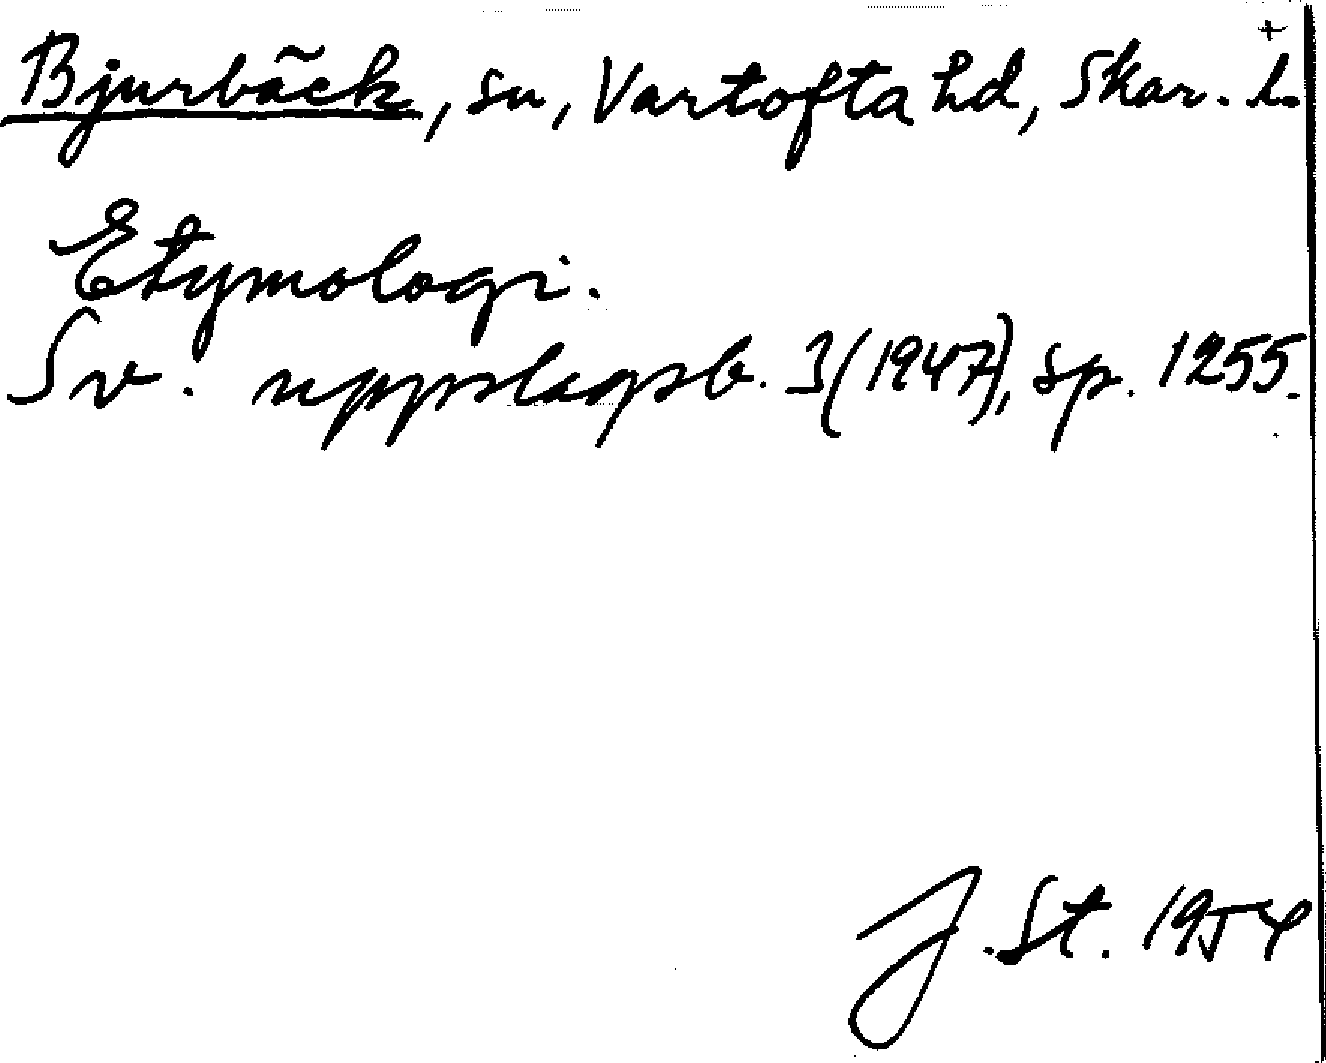 +
Bjurbäck, sn, Vartofta hd, Skar. l.
Etymologi.
Sv. uppslagsb. 3 (1947), sp. 1255.
J. St. 1954